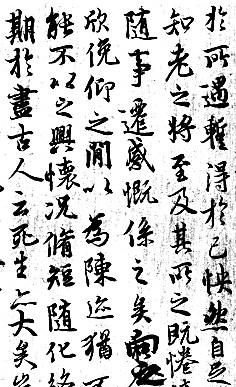 於所遇暫得於己快然自足
知老之將至及其所之既惓
隨事遷感慨係之矣向
欣俛仰之閒以為陳迹猶不
能不以之興懷況脩短隨化終
期於盡古人云死生亦大矣